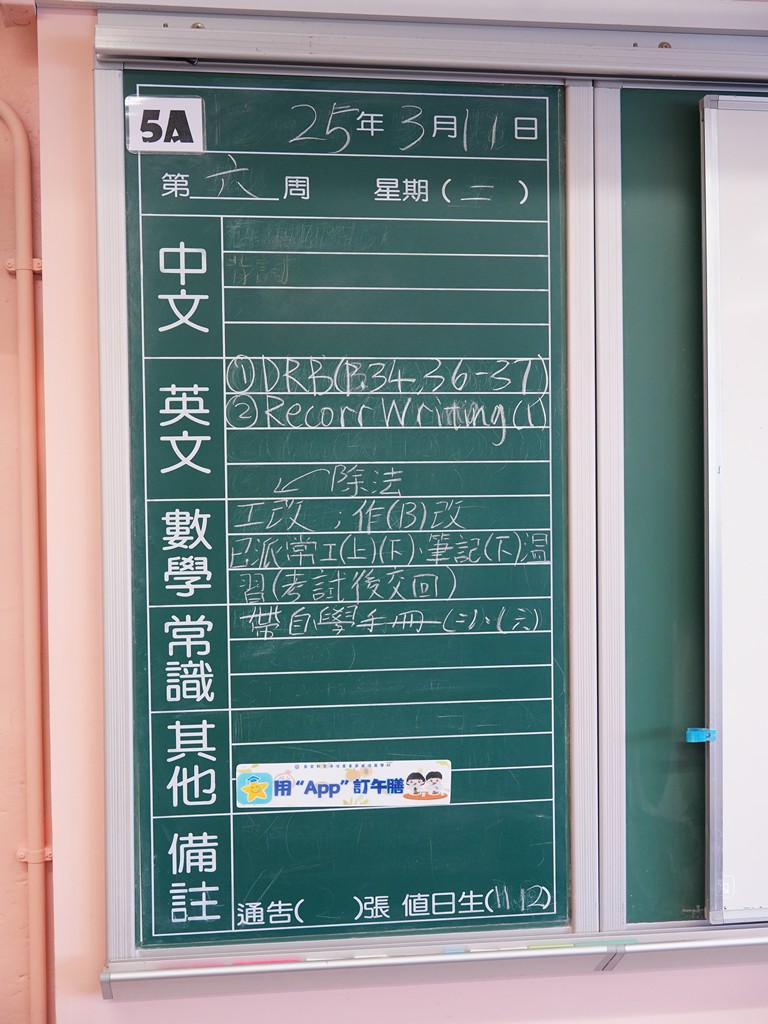 5A
25年3月11日
第六周 星期(二)
中文
背詞
英文
①DRB(P.34,36-37)
②Recorr Writing(1)
除法
數學
工改;作(B)改
已派常工(上)(下)、筆記(下)溫
習(考試後交回)
常識
帶自學手冊(二)、(六)
其他
用“App”訂午膳
備註
通告( )張 值日生(11,12)